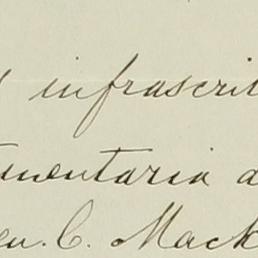 y infrascrit
mentaria a
en. C. Mack